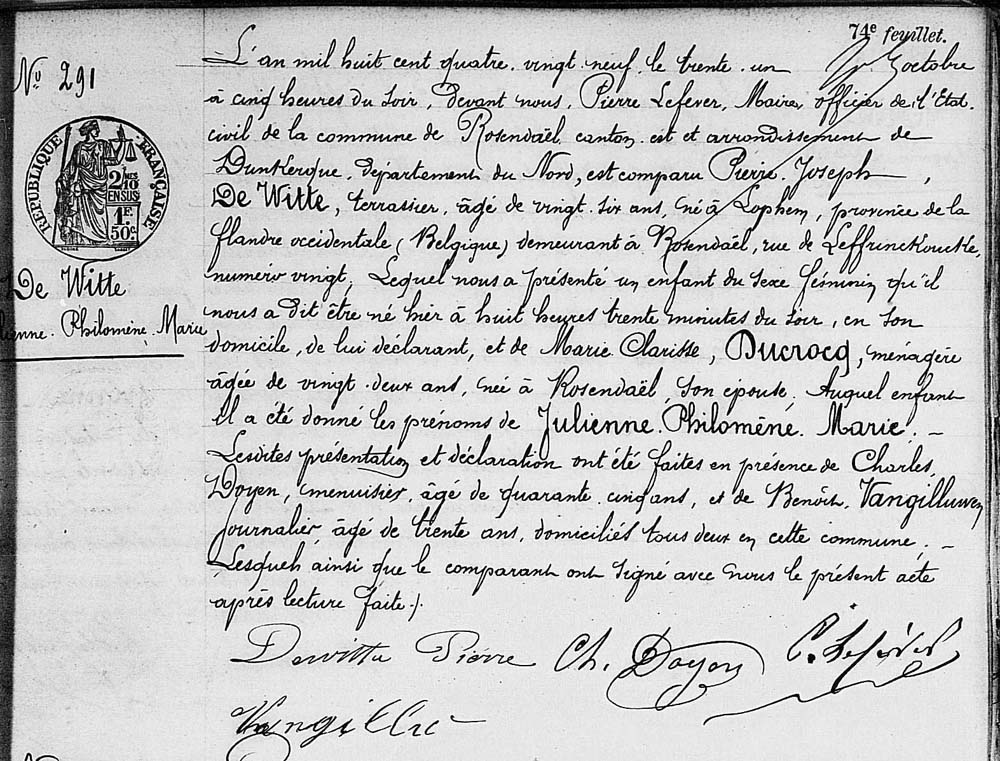 74e feuillet.
No 291
L'an mil huit cent quatre-vingt neuf le trente-un octobre
à cinq heures du soir, devant nous, Pierre Lefever, Maire, officier de l'Etat-
civil de la commune de Rosendaël, canton est et arrondissement de
Dunkerque, département du Nord, est comparu Pierre-Joseph,
De Witte, terrassier, âgé de vingt-six ans, né à Lophem, province de la
flandre occidentale (Belgique) demeurant à Rosendaël, rue de Leffrinckoucke,
numéro vingt, Lequel nous a présenté un enfant du sexe féminin qu'il
nous a dit être né hier à huit heures trente minutes du soir, en son
domicile, de lui déclarant, et de Marie-Clarisse, Ducrocq, ménagère
âgée de vingt-deux ans, née à Rosendaël, son épouse, Auquel enfant
il a été donné les prénoms de Julienne-Philomène-Marie. –
Lesdites présentation et déclaration ont été faites en présence de Charles,
Doyen, menuisier, âgé de quarante-cinq ans, et de Benoît, Vangilluwen
journalier, âgé de trente ans, domiciliés tous deux en cette commune. –
Lesquels ainsi que le comparant ont signé avec nous le présent acte
après lecture faite./.
RÉPUBLIQUE FRANÇAISE
2/10
EN SUS
1 F.
50 c.
De Witte
ienne-Philomène-Marie
Dewitte Pierre Ch. Doyen